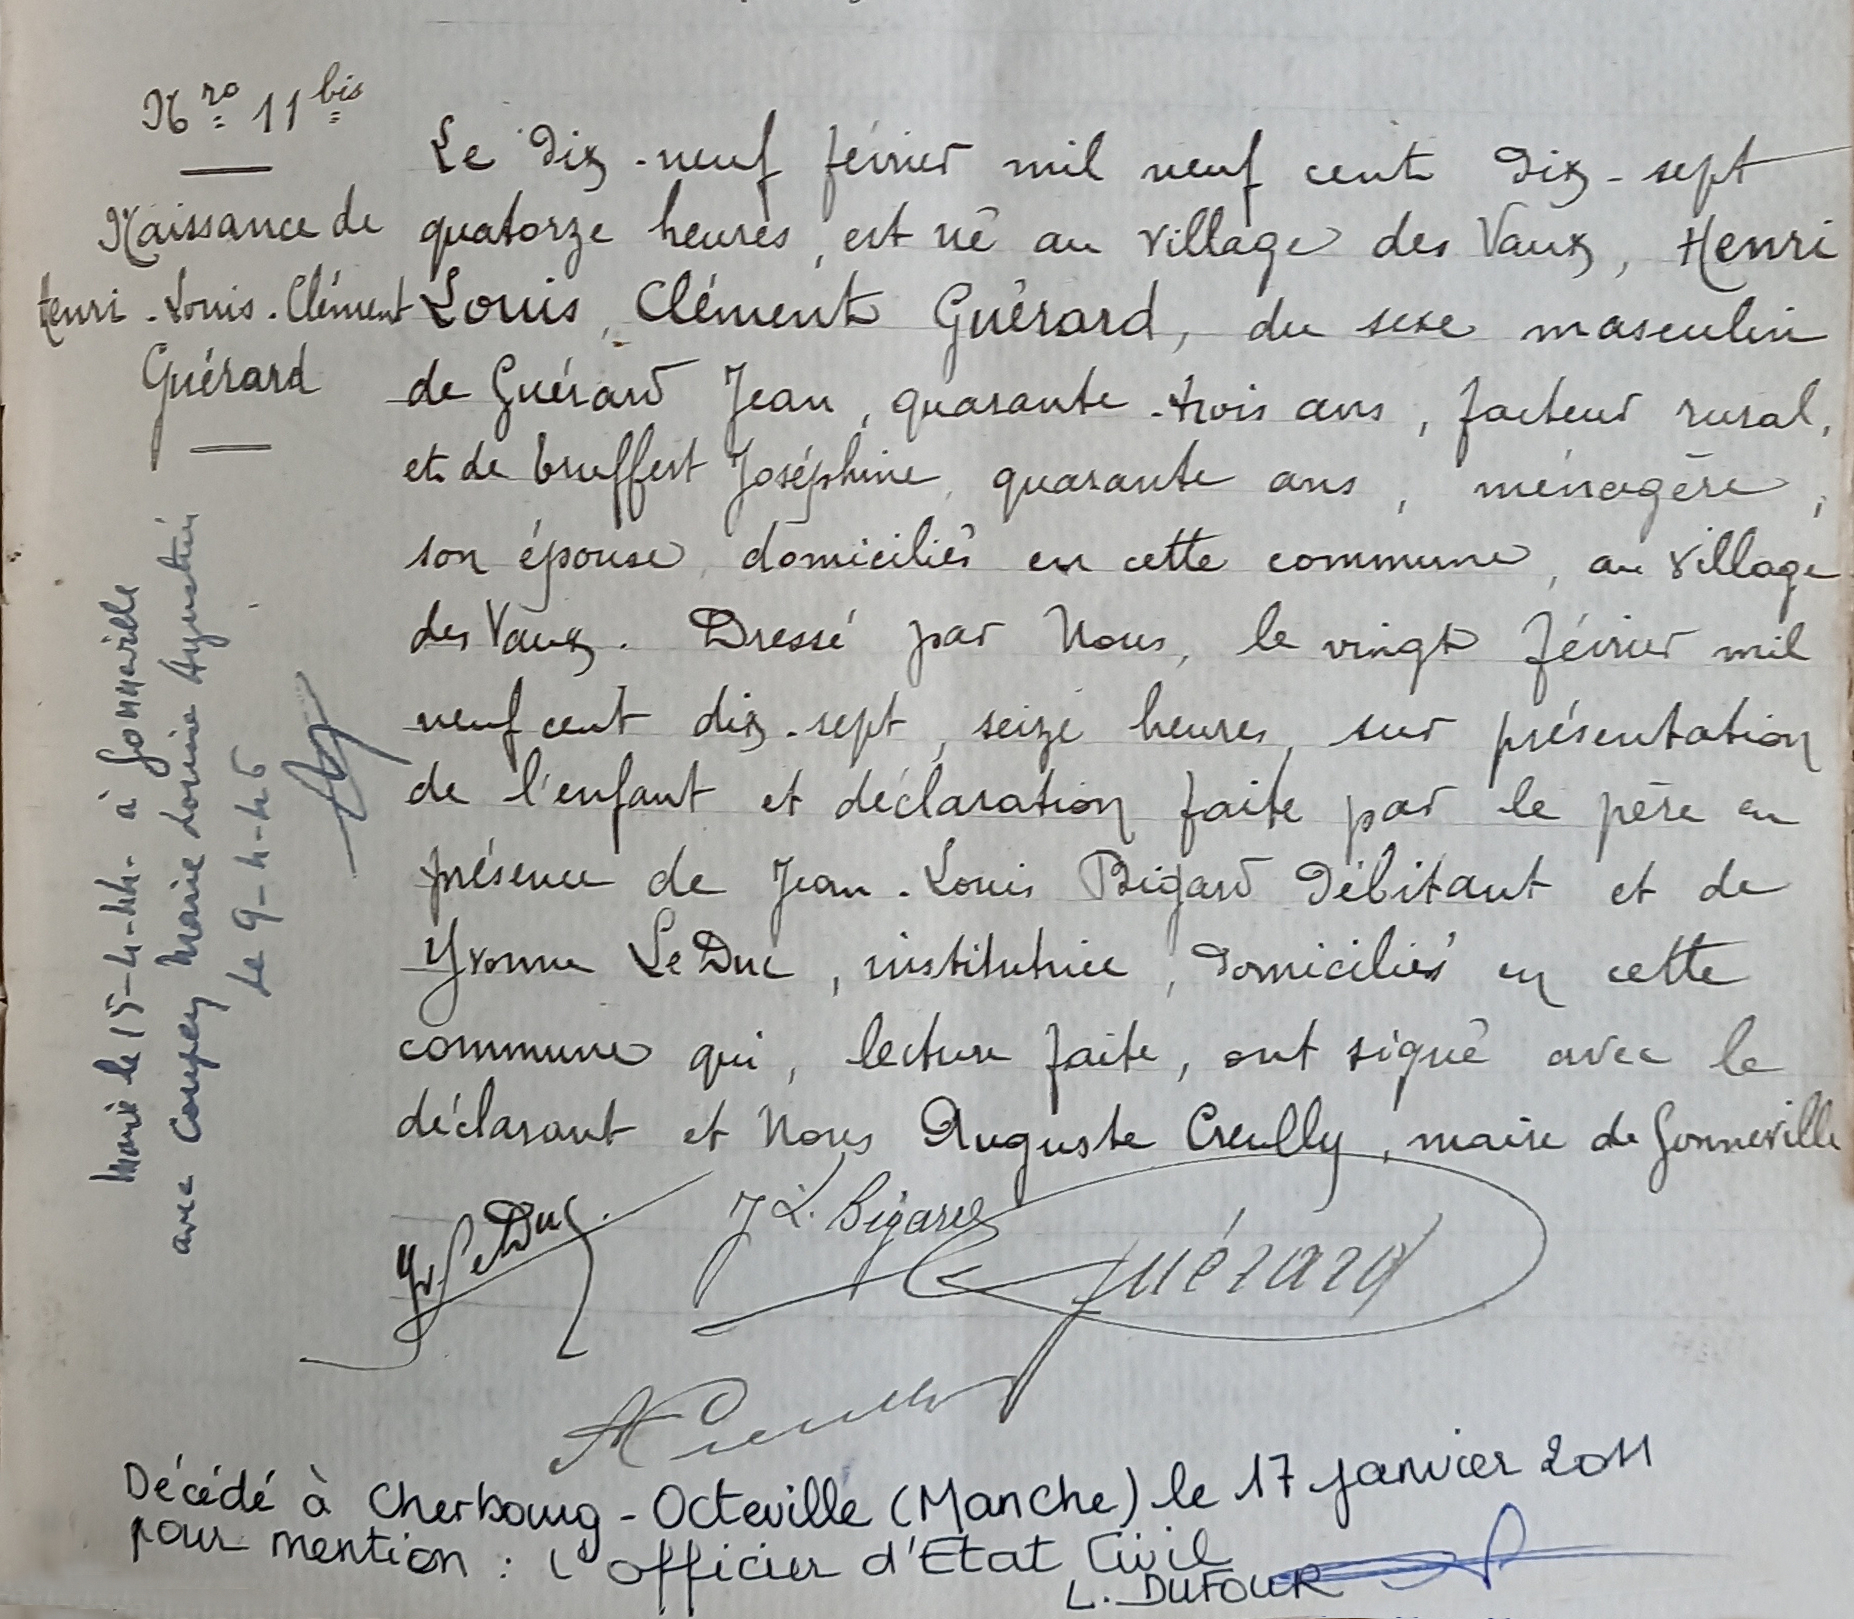 Nro 11 bis
Naissance de
Henri - Louis - Clément
Guérard
Le dix-neuf février mil neuf cent dix-sept
quatorze heures, est né au village des Vaux, Henri
Louis, Clément Guérard, du sexe masculin
de Guérard Jean, quarante-trois ans, facteur rural,
et de Joséphine, quarante ans, ménagère,
son épouse, domiciliés en cette commune, au village
des Vaux. Dressé par Nous, le vingt février mil
neuf cent dix-sept, seize heures, sur présentation
de l'enfant et déclaration faite par le père en
présence de Jean-Louis Bigard débitant et de
Yvonne Le Duc, institutrice, domiciliés en cette
commune qui, lecture faite, ont signé avec le
déclarant et Nous Auguste Creully, maire de Gonneville
Marié le 15-4-44- à Gonneville
avec Coupey Marie Louise Augustine
Le 9-4-46
Yv Le Duc.
J L. Bigard
Guérard
A Creully
Décédé à Cherbourg-Octeville (Manche) le 17 janvier 2011
pour mention : L'officier d'Etat Civil
L. DUFOUR